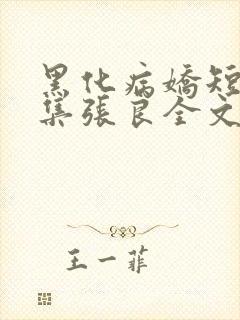 黑化病嬌短
集張良全文
王一菲